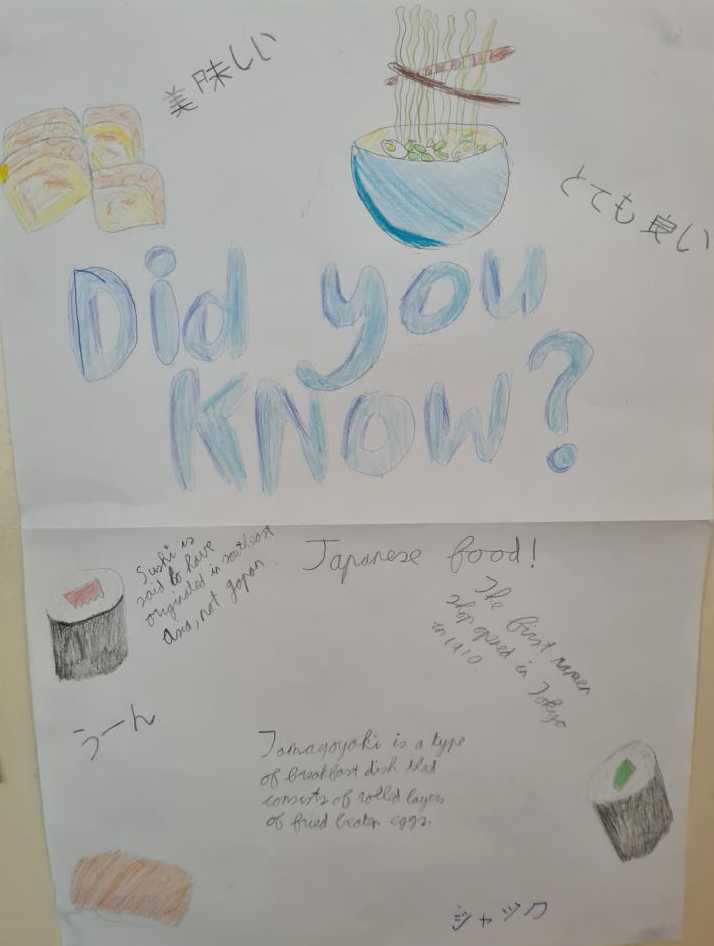 美味しい
とても良い
Did you
KNOW?
Japanese food!
Sushi is
said to have
originated in southeast
asia, not Japan.
The first ramen
shop opened in Tokyo
in 1910.
うーん
Tamagoyaki is a type
of breakfast dish that
consists of rolled layers
of fried beaten eggs.
ジャック